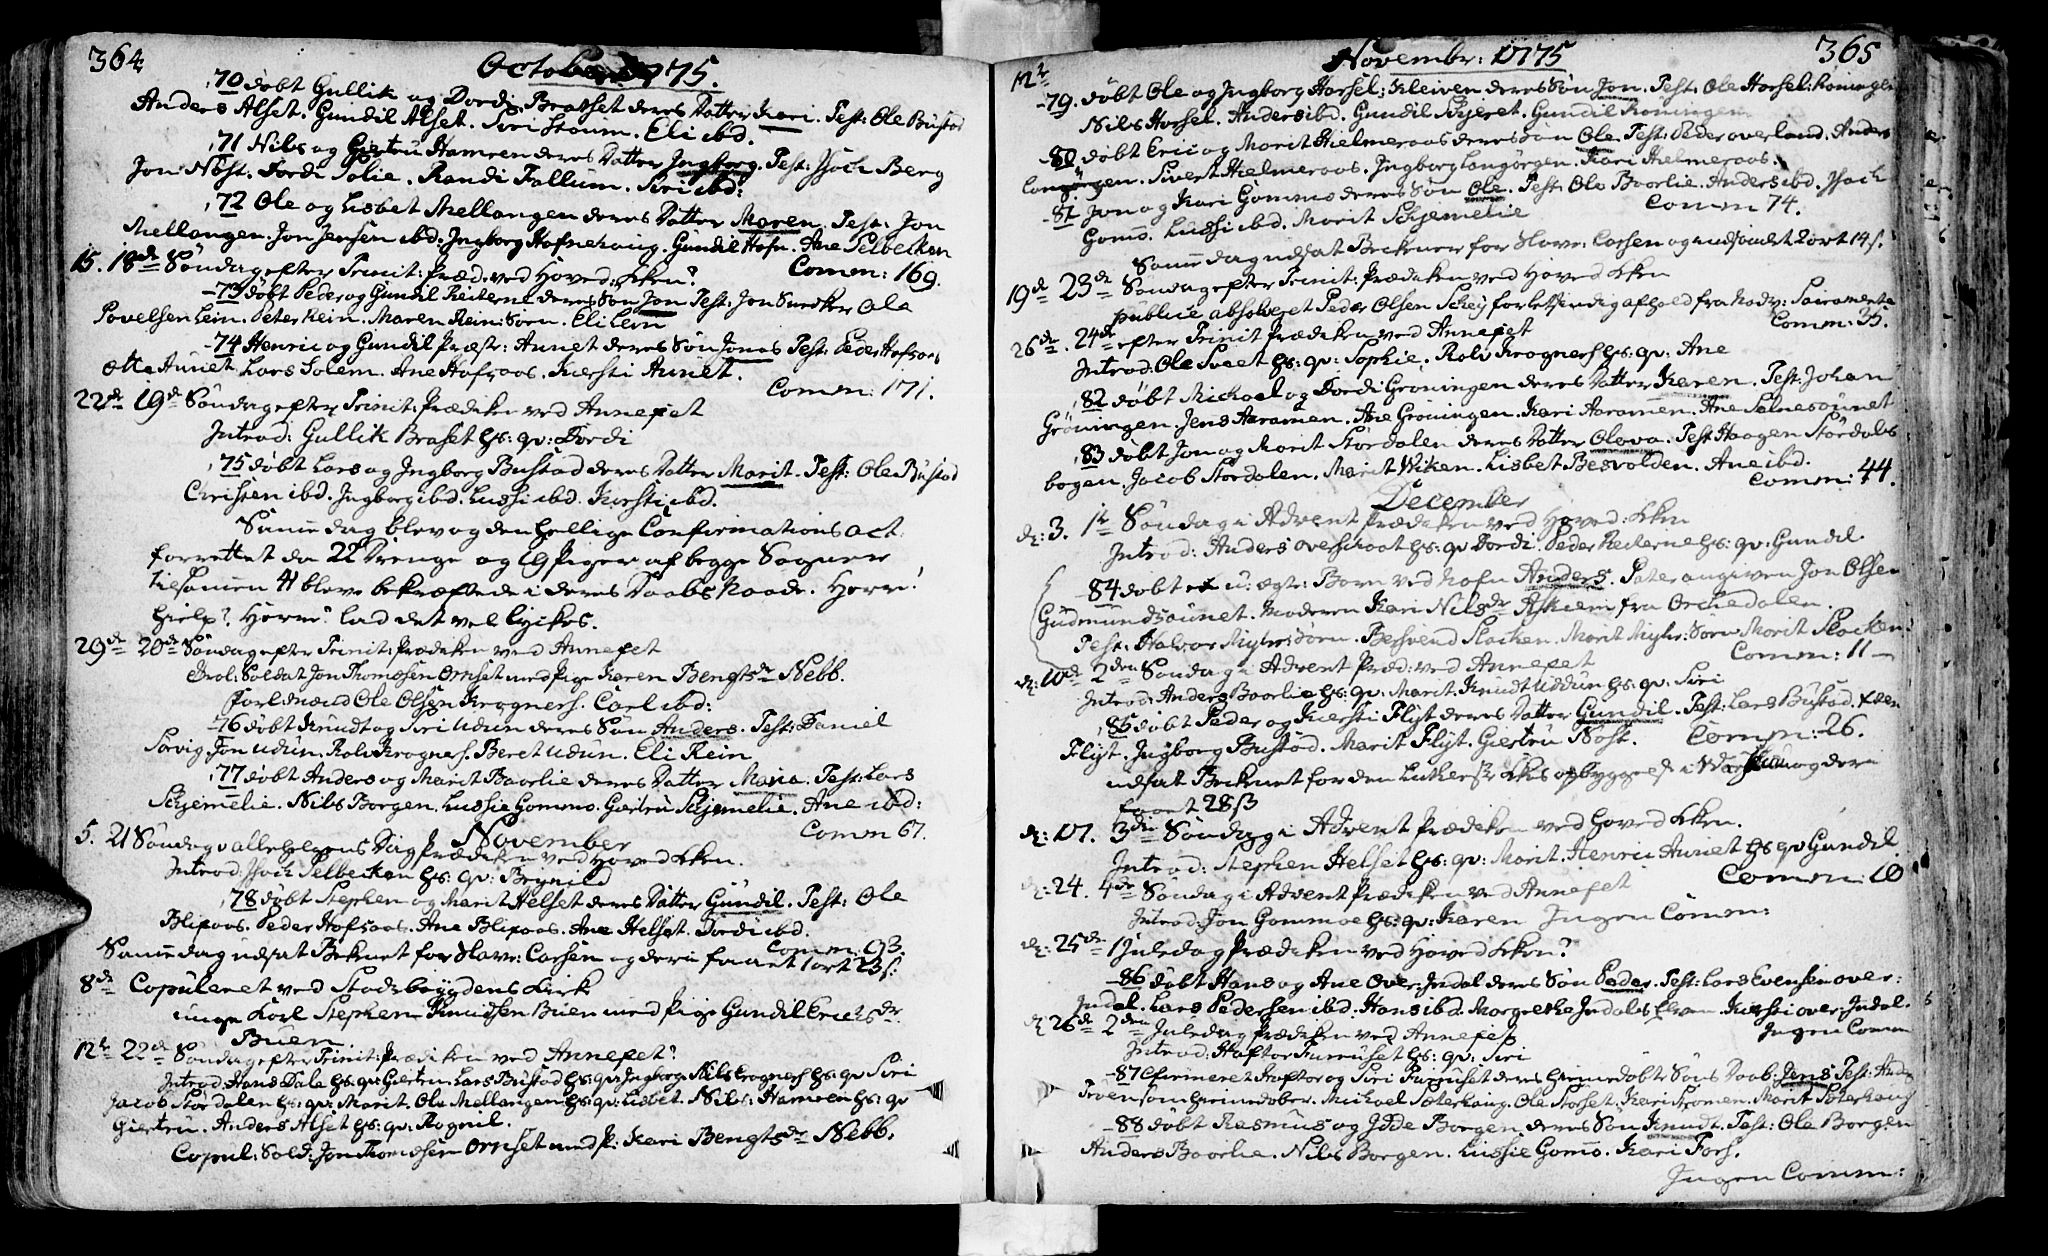 364
October 1775.
70 døbt Gullik og Dordi Brasset deres Datter Kari. Test: Ole Bustad
Anders Alset. Gundil Alset. Siri Stouin. Eli ibd.
71 Nils og Giertru Hamren deres Datter Ingborg. Test: Isach Berg
Jon Nöst. Dordi Solie. Randi Fallum. Siri ibd:
72 Ole og Lisbet Mellangen deres Datter Maren. Test: Jon
Mellangen. Jon Jensen ibd: Ingborg Hofnehaug. Gundil Hofn. Ane Selbecken
Comm: 169.
15. 18de Søndag efter Trinit: Præd: ved Hoved:Kken?
73 døbt Peder og Gundil Reiterne deres Søn Jon Test: Jon Snedker Ole
Povelsen Lein. Peter Rein. Maren Rein: Sørn. Eli Lein
74 Henric og Gundil Præst: Aunet deres Søn Jonas Test: Peder Hofraas
Aunet. Lars Solem. Ane Hofraas. Kiersti Aunet.
Comm: 171.
22de 19de Søndag efter Trinit: Prædiken ved Annexet
Introd: Gullik Braset hs: qv: Dordi
75 døbt Lars og Ingborg Bustad deres Datter Marit. Test: Ole Bustad
Christen ibd. Ingborg ibd. Lussi ibd. Kiersti ibd.
Samme dag blev og den hellige Confirmations Act
forrettet da 22 Drenge og 19 Piger af begge Sogner
tilsamen 41 bleve bekræftede i deres Daabs Naade. Herre!
hielp? Herre? lad det vel lyckes.
29de 20de Søndag efter Trinit: Prædiken ved Annexet
Trol: Soldat Jon Thomesen Ornset med Pige Karen Bengtsdr Nebb.
forl: mænd Ole Olsen Krognes. Carl ibd:
76 døbt Knudt og Siri Udun deres Søn Anders. Test: Daniel
Sorvig. Jon Udun. Rolv Krognes. Beret Udun. Eli Rein
77 døbt Anders og Marit Baarlie deres Datter Maria. Test: Lars
Skjemelie. Nils Borgen. Lussie Gommo. Giertru Skjemelie. Ane ibd:
Comm 67.
November
5. 21 Søndag v allehelgens Dag Prædiken ved Hoved Kken.
Introd: Isach Selbecken hs: qv: Brynild
78 døbt Stephen og Marit Helset deres Datter Gundil. Test: Ole
Blixaas. Peder Hofraas. Ane Blixaas. Ane Helset. Dordi ibd.
Comm: 93
Samme dag udsat Beknet for Slave: Carsen og deri faaet 1 ort 23 s:
8de Copuleret ved Stadsbøygdens Kirk
unge Karl Stephen Knudsen Buen med Pige Gundil Ericksdr
Buen
12te 22de Søndag efter Trinit: Prædiken ved Annexet?
Introd: Hans Dale hs: qv: Giertru. Lars Bustad hs: qv: Ingborg. Nils Krognes hs: qv Siri
Jacob Stordalen hs: qv: Marit. Ole Mellangen hs: qv: Lisbet. Nils Hamren hs: qv
Giertru. Anders Alset hs: qv: Rognil.
Copul: Sold: Jon Thomesen Ornset med P: Kari Bengtsdr Nebb.
Novembr: 1775
365
12te
79. døbt Ole og Ingborg Horsel: Kleiven deres Søn Jon. Test: Ole Horsel: Koningen
Nils Horsel. Anders ibd. Gundil Skjeret. Gundil Koningen
80 døbt Eric og Marit Hielmeraas deres Søn Ole Test: Peder overland. Anders
Langørgen. Sivert Hielmeraas. Ingborg Langørgen. Kari Hielmeraas.
81 Jon og Kari Gommo deres Søn Ole. Test: Ole Baarlie. Anders ibd. Isach
Gomo. Lussi ibd. Marit Skjemelie
Comm 74.
Samme dag udsat Bekner for Slave: Carsen og udsamlet 2 ort 14 s.
19de 23de Søndag efter Trinit: Prædiken ved Hoved Kken
publice absolveret Peder Olsen Schey for letsindig afhold fra Nadv: Sacramente
Comm: 35.
26de. 24de efter Trinit Prædiken ved Annexet
Introd: Ole Svaet hs: qv: Sophie. Rolv Krognes hs: qv: Ane
82 døbt Michael og Dordi Gröningen deres Datter Karen. Test: Johan
Gröningen. Jens Aaramen. Ane Gröningen. Kari Aaramen. Ane Selnesounet
83 døbt Jon og Marit Stordalen deres Datter Olava. Test Haagen Stordals
bogen. Jacob Stordalen. Marit Wiken. Lisbet Besvolden. Ane ibd.
Comm: 44.
December
d: 3. 1te Søndag i Advent Prædiken ved Hoved:Kken
Introd: Anders overskaat hs: qv Dordi. Peder Reiterne hs: qv: Gundil.
84 døbt et u: ægt: Barn ved Nafn Anders. Pater angiven Jon Olsen
Gudmundsounet. Moderen Kari Nilsdr Askiem fra Orchedalen.
Test: Halvor Myhrs Sørn. Bersvend Slacken. Marit Myhr: Sørn Marit Slacken
Comm: 11
d: 10de 2den Søndag i Advent Præd: ved Annexet
Introd: Anders Baarlie hs: qv: Marit. Knudt Uddun hs: qv: Siri
85 døbt Peder og Kiersti Flyt deres Datter Gundil. Test: Lars Bustad.
Flyt. Ingborg Bustad. Marit Flyt. Giertru Nöst.
Comm: 26.
udsat Beknet for den Lutherske Kkes opbyggelse i og deri
faaet 28 s
d: 17. 3die Søndag i Advent Prædiken ved Hoved Kken.
Introd: Stephen Helset hs: qv: Marit. Henric Aunet hs qv Gundil
Comm: 10
d: 24. 4de Søndag i Advent Prædiken ved Annexet
Introd: Jon Gommoe hs: qv: Karen Ingen Comm:
d: 25de Juledag Prædiken ved Hoved Kken?
86 døbt Hans og Ane Over: Indal deres Søn Peder. Test: Lars Evensen over:
Indal. Lars Pedersen ibd. Hans ibd. Margrethe Indals Elven. Kiersti over: Indal.
Ingen Comm
d: 26de 2den Juledag Prædiken ved Annexet
Introd: Haftor Furruset hs: qv: Siri
87 Christneret Haftor og Siri Furruset deres hiemmedøbte Søns Daab Jens Test: Anders
Treven som hiemmedøber. Michael Soterhaug. Ole Storset. Kari Kromen. Marit Soterhaug
88 døbt Rasmus og Idde Borgen deres Søn Knudt. Test: Ole Borgen
Anders Baarlie. Nils Borgen. Lussie Gomo. Kari Fors.
Ingen Comm: